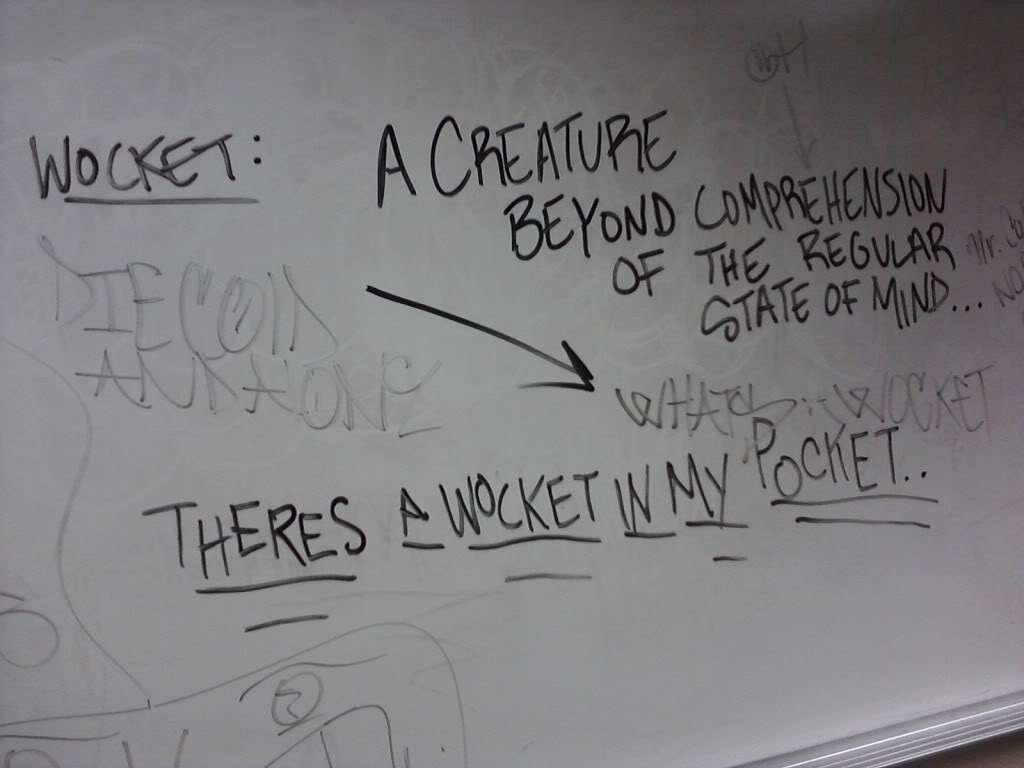 WOCKET:
A CREATURE
BEYOND COMPREHENSION
OF THE REGULAR
STATE OF MIND...
DIE COLD
AND ALONE
WHATS A WOCKET
THERES A WOCKET IN MY POCKET..
Mr.